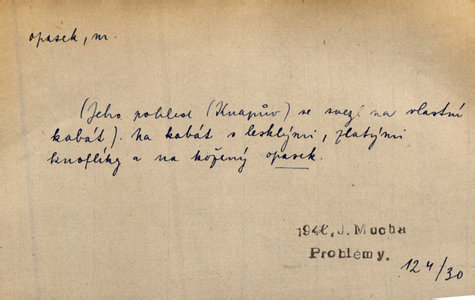 opasek, m.
(Jeho pohled (Knapův) se svezl na vlastní
kabát). Na kabát s lesklými, zlatými
knoflíky a na kožený opasek.
1946, J. Mucha
Problémy.
124/30